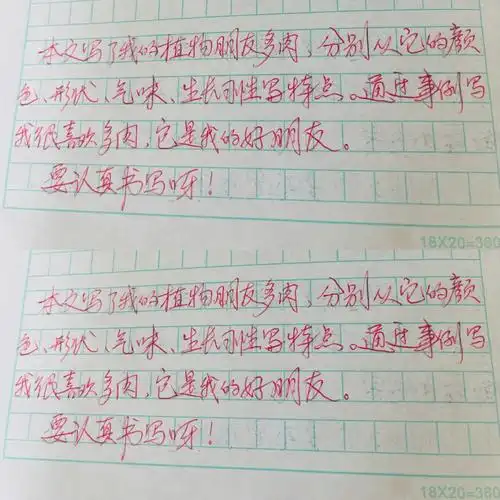 本文写了我的植物朋友多肉，分别从它的颜
色、形状、气味、生长习性写特点。通过事例写
我很喜欢多肉，它是我的好朋友。
要认真书写呀！
18X20=360
本文写了我的植物朋友多肉，分别从它的颜
色、形状、气味、生长习性写特点。通过事例写
我很喜欢多肉，它是我的好朋友。
要认真书写呀！
18X20=360